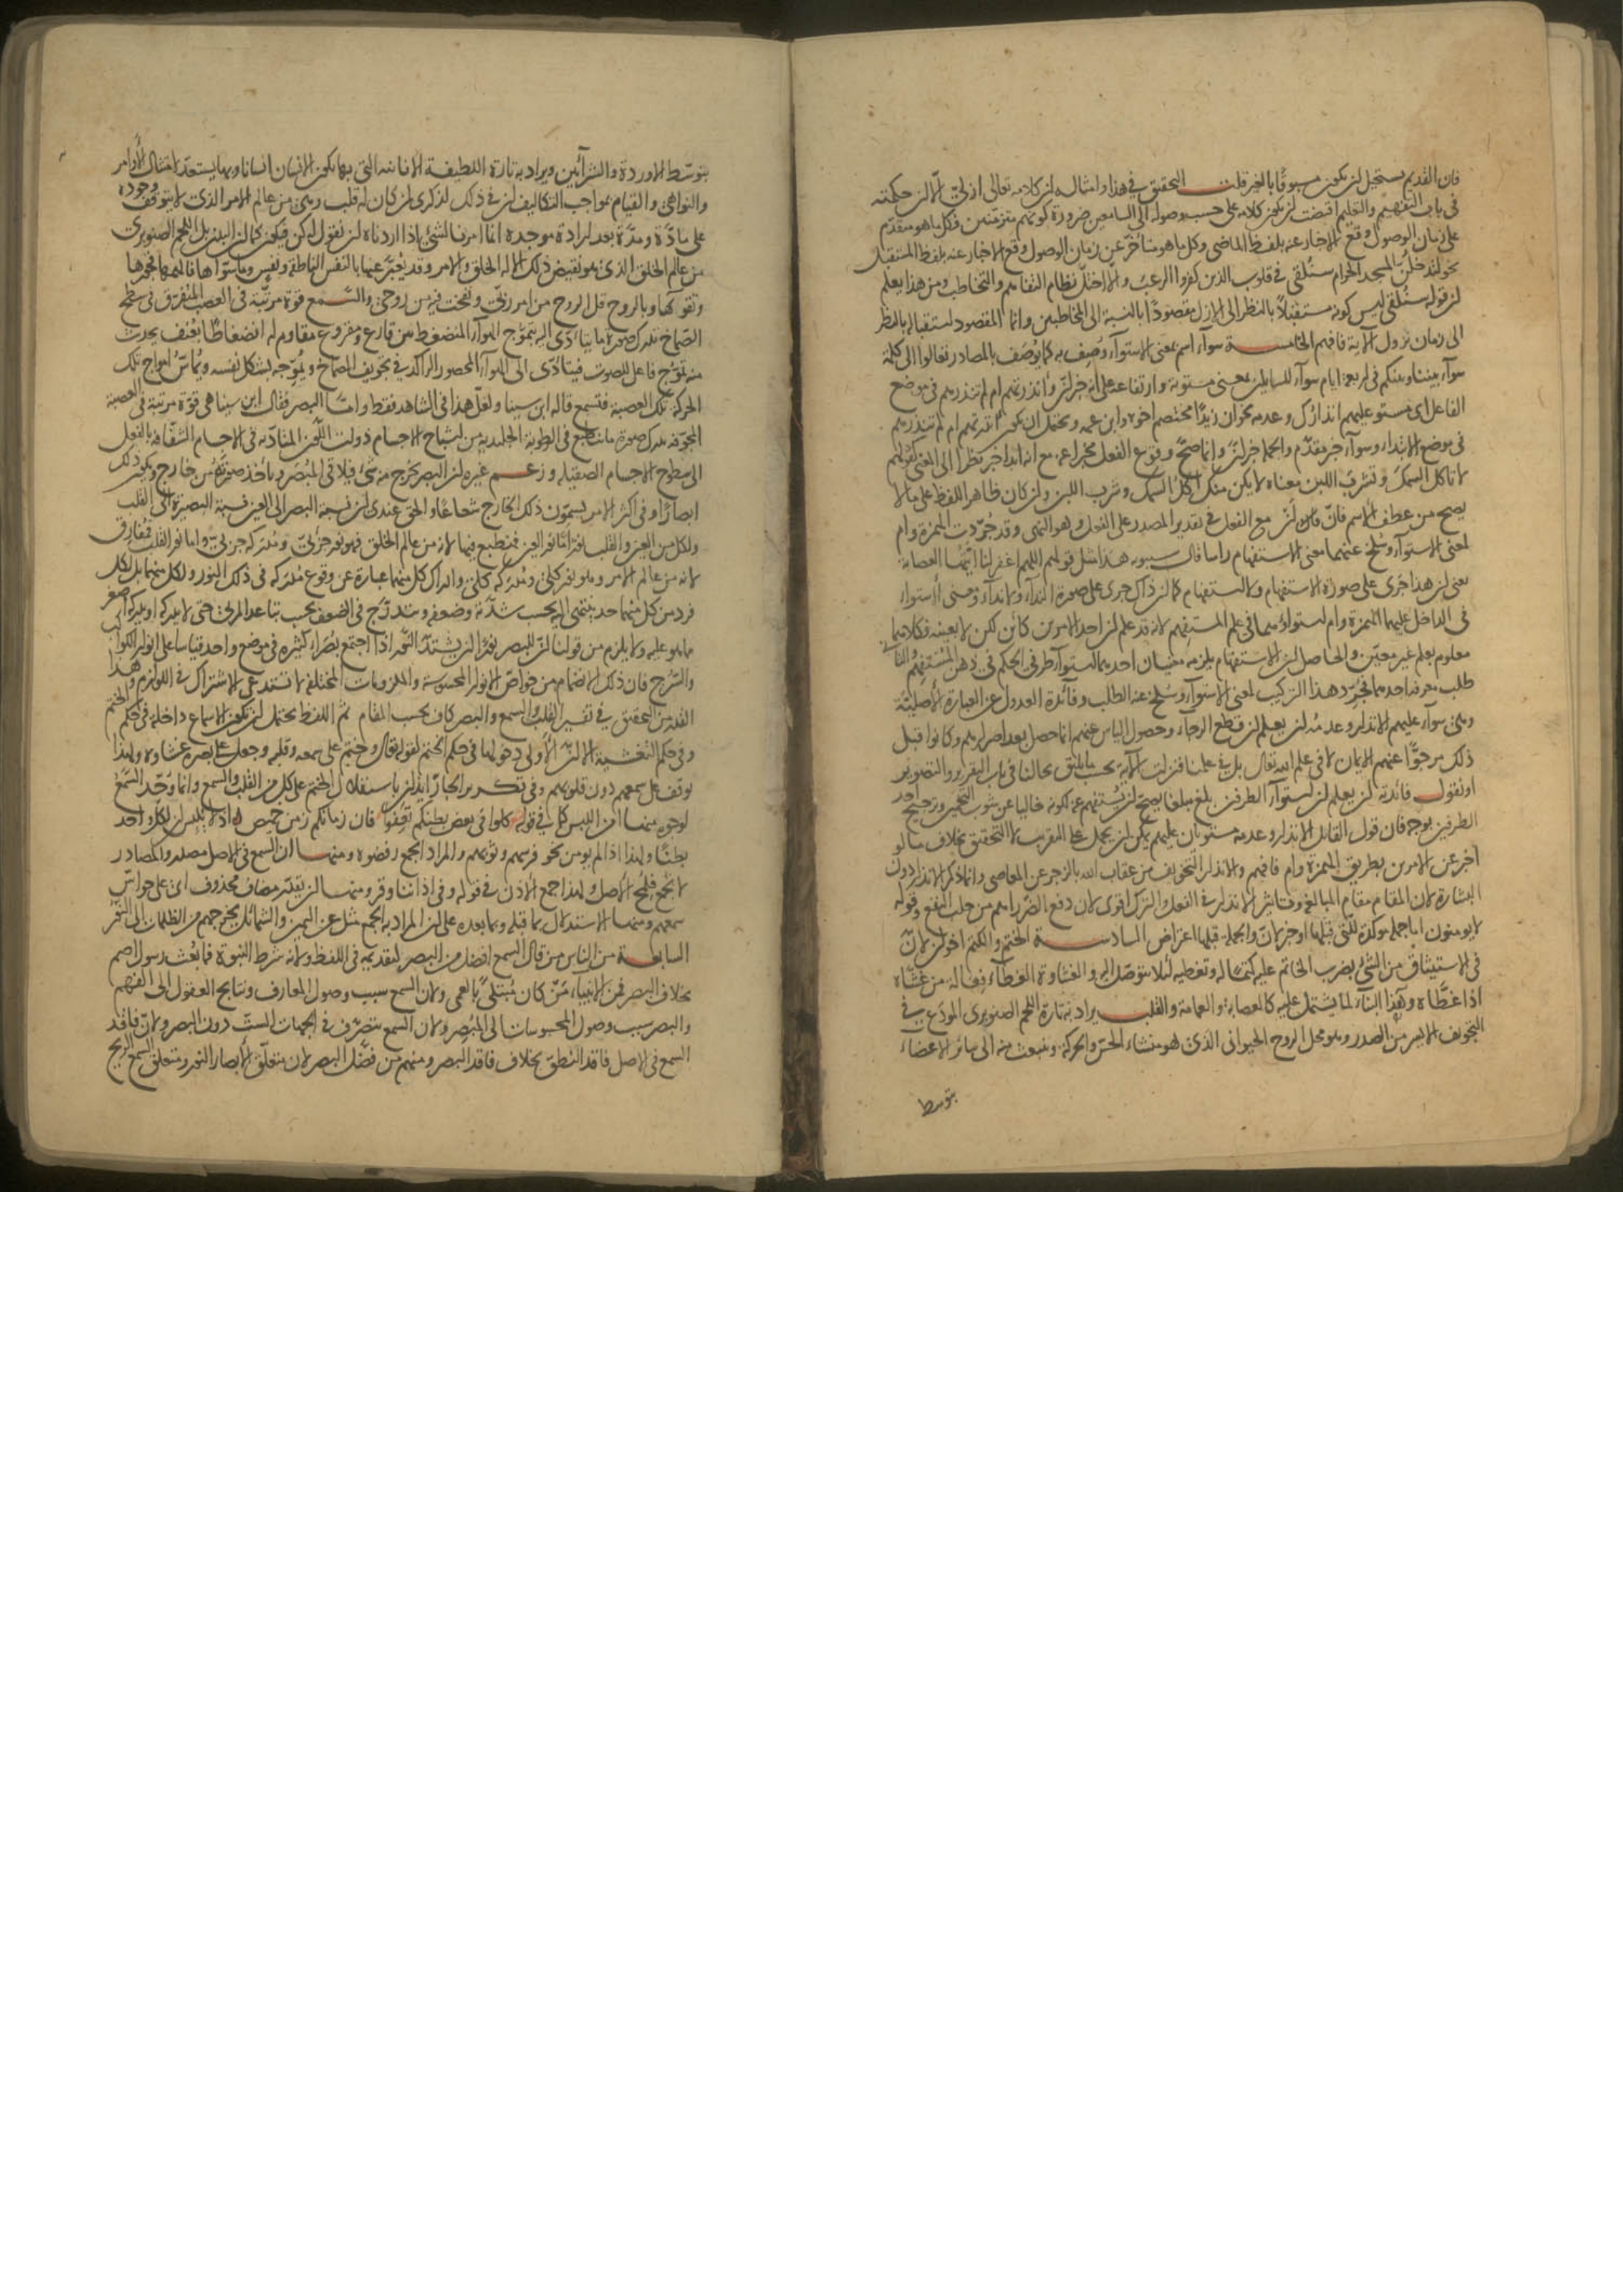 فان القديم يستحيل ان يكون مسبوقا بالغير قلت التحقيق في هذا وامثاله ان كلامه تعالى ازلي الا ان حكمته
في باب التفهيم والتعليم اقتضت ان يكون كلامه على حسب وصوله الى السامعين ضرورة كونهم متزمنين فكل ما هو متقدم
على زمان الوصول وقع الاخبار عنه بلفظ الماضي وكل ما هو متأخر عن زمان الوصول وقع الاخبار عنه بلفظ المستقبل
نحو لتدخلن المسجد الحرام سنلقي في قلوب الذين كفروا الرعب والا اختل نظام التفاهم والتخاطب ومن هذا يعلم
ان قوله سنلقي ليس كونه مستقبلا بالنظر الى الازل مقصودا بالنسبة الى المخاطبين وانما المقصود استقباله بالنظر
الى زمان نزول الآية فافهم الخامسة سواء اسم بمعنى الاستواء وصف به كما يوصف بالمصادر تعالوا الى كلمة
سواء بيننا وبينكم في اربعة ايام سواء للسائلين بمعنى مستوية وارتفاعه على انه خبر لان وأنذرتهم ام لم تنذرهم في موضع
الفاعل اي مستو عليهم انذارك وعدمه نحو ان زيدا مختصم اخوه وابن عمه ويحتمل ان يكون أنذرتهم ام لم تنذرهم
في موضع الابتداء وسواء خبر مقدم والجملة خبر لان وانما صح وقوع الفعل مخبرا عنه مع انه ابدا خبر نظرا الى المعنى كقولهم
لا تاكل السمك وتشرب اللبن معناه لا يكن منك اكل السمك وشرب اللبن وان كان ظاهر اللفظ على ما لا
يصح من عطف الاسم فان ان مع الفعل في تقدير المصدر على الفعل وهو النهي وقد جردت الهمزة وام
لمعنى الاستواء وسلخ عنهما معنى الاستفهام راسا قال سيبويه هذا مثل قولهم اللهم اغفر لنا ايتها العصابة
يعني ان هذا جرى على صورة الاستفهام ولا استفهام كما ان ذاك جرى على صورة النداء ولا نداء ومعنى الاستواء
في الداخل عليهما الهمزة وام استواؤهما في علم المستفهم لانه قد علم ان احد الامرين كائن لكن لا بعينه فكلاهما
معلوم بعلم غير معين والحاصل ان الاستفهام يلزمه معنيان احدهما استواء طرفي الحكم في ذهن المستفهم والثاني
طلب معرفة احدهما فجرد هذا التركيب لمعنى الاستواء وسلخ عنه الطلب وفائدة العدول عن العبارة الاصلية
وهي سواء عليهم الانذار وعدمه ان يعلم ان قطع الرجاء وحصول الياس عنهم انما حصل بعد اصرارهم وكانوا قبل
ذلك مرجوا عنهم الايمان لا في علم الله تعالى بل في علمنا فنزلت الآية بحسب ما يليق بحالنا في باب التقرير والتصوير
او نقول فائدته ان يعلم ان استواء الطرفين بلغ مبلغا يصح ان يستفهم عنه لكونه خاليا عن شوب التخمين وترجيح احد
الطرفين بوجه فان قول القائل الانذار وعدمه مستويان عليهم يمكن ان يحمل على التقريب لا التحقيق بخلاف ما لو
اخبر عن الامرين بطريق الهمزة وام فافهم والانذار التخويف من عقاب الله بالزجر عن المعاصي وانما ذكر الانذار دون
البشارة لان المقام مقام المبالغة وتاثير الانذار في الفعل والترك اقوى لان دفع الضرر اهم من جلب النفع وقوله
لا يومنون اما جملة موكدة للتي قبلها او خبر لان والجملة قبلها اعتراض السادسة الختم والكتم اخوان لان
في الاستيثاق من الشئ بضرب الخاتم عليه كتما له وتغطية لئلا يتوصل اليه والغشاوة الغطاء فعالة من غشاه
اذا غطاه وهذا البناء لما يشتمل عليه كالعصابة والعمامة والقلب يراد به تارة اللحم الصنوبري المودع في
التجويف الايسر من الصدر وهو محل الروح الحيواني الذي هو منشاء الحس والحركة وينبعث منه الى سائر الاعضاء
بتوسط
بتوسط الاوردة والشرائين ويراد به تارة اللطيفة الانسانية التي بها يكون الانسان انسانا وبها يستعد لامتثال الاوامر
والنواهي والقيام بمواجب التكاليف ان في ذلك لذكرى لمن كان له قلب وهي من عالم الامر الذي لا يتوقف وجوده
على مادة ومدة بعد ارادة موجده انما امرنا لشئ اذا اردناه ان نقول له كن فيكون كما ان البدن بل اللحم الصنوبري
من عالم الخلق الذي هو نقيض ذلك الا له الخلق والامر وقد يعبر عنها بالنفس الناطقة ونفس وما سواها فالهمها فجورها
وتقويها وبالروح قل الروح من امر ربي ونفخت فيه من روحي والسمع قوة مرتبة في العصب المتفرق في سطح
الصماخ تدرك صورة ما يتأدى اليه بتموج الهواء المنضغط بين قارع ومقروع مقاوم له انضغاطا بعنف يحدث
منه تموج فاعل للصوت فيتأدى الى الهواء المحصور الراكد في تجويف الصماخ ويموجه بشكل نفسه ويماس امواج تلك
الحركة تلك العصبة فتسمع قاله ابن سينا ولعل هذا في الشاهد فقط واما البصر فقال ابن سينا هي قوة مرتبة في العصبة
المجوفة تدرك صورة ما ينطبع في الرطوبة الجليدية من اشباح الاجسام ذوات اللون المتادية في الاجسام الشفافة بالفعل
الى سطوح الاجسام الصقيلة وزعم غيره ان البصر يخرج منه شئ فيلاقي المبصر وياخذ صورته من خارج ويكون ذلك
ابصارا وفي اكثر الامر يسمون ذلك الخارج شعاعا والحق عندي ان نسبة البصر الى العين نسبة البصيرة الى القلب
ولكل من العين والقلب نور اما نور العين فمنطبع فيها لانه من عالم الخلق فهو نور جزئي ومدركه جزئي واما نور القلب فمفارق
لانه من عالم الامر وهو نور كلي ومدركه كلي وادراك كل منهما عبارة عن وقوع مدركه في ذلك النور ولكل منهما بل لكل
فرد من كل منهما حد ينتهي اليه بحسب شدته وضعفه ويتدرج في الضعف بحسب تباعد المرئي حتى لا يدركه او يدركه اصغر
مما هو عليه ولا يلزم من قولنا ان للبصر نورا ان يشتد النور اذا اجتمع بصراء كثيرة في موضع واحد قياسا على انوار الكواكب
والسرج فان ذلك الانضمام من خواص الانوار المحسوسة والملزومات المختلفة لا تستدعي الاشتراك في اللوازم وهذا
القدر من التحقيق في تفسير القلب والسمع والبصر كاف بحسب المقام ثم اللفظ يحتمل ان تكون الاسماع داخلة في حكم الختم
وفي حكم التغشية الا ان الاولى دخولها في حكم الختم لقوله تعالى وختم على سمعه وقلبه وجعل على بصره غشاوة ولهذا
يوقف على سمعهم دون قلوبهم وفي تكرير الجار ايذان باستقلال الختم على كل من القلب والسمع وانما وحد السمع
لوجوه منها امن اللبس كما في قوله كلوا في بعض بطنكم تعفوا فان زمانكم زمن خميص اذ لا يلبس ان لكل واحد
بطنا ولهذا اذا لم يومن نحو فرسهم وثوبهم والمراد الجمع رفضوه ومنها ان السمع في الاصل مصدر والمصادر
لا تجمع فلمح الاصل ولهذا جمع الاذن في قوله وفي اذاننا وقر ومنها ان يقدر مضاف محذوف اي على حواس
سمعهم ومنها الاستدلال بما قبله وبما بعده على ان المراد به الجمع مثل عن اليمين والشمائل يخرجهم من الظلمات الى النور
السابعة من الناس من قال السمع افضل من البصر لتقديمه في اللفظ ولانه شرط النبوة فما بعث رسول اصم
بخلاف البصر فمن الانبياء من كان مبتلى بالعمى ولان السمع سبب وصول المعارف ونتايج العقول الى الفهم
والبصر سبب وصول المحسوسات الى المبصر ولان السمع يتصرف في الجهات الست دون البصر ولان فاقد
السمع في الاصل فاقد النطق بخلاف فاقد البصر ومنهم من فضل البصر لان متعلق الابصار النور ومتعلق السمع الريح